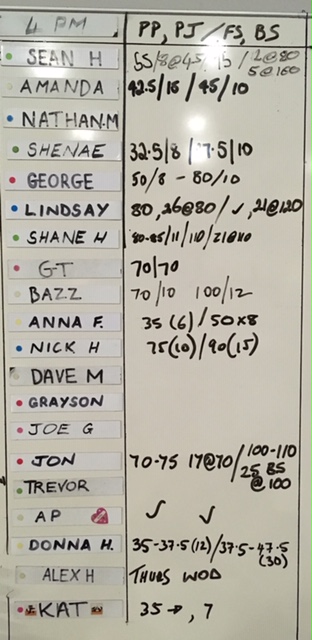 4 PM PP, PJ / FS, BS
SEAN H 55/8@45, 15 / 12@80
5@160
AMANDA 42.5/16 / 45/10
NATHAN.M
SHENAE 32.5/8 / 10
GEORGE 50/8 - 80/10
LINDSAY 80, 26@80 / ✓, 21@120
SHANE H 80-85/11/110/21@110
GT 70/70
BAZZ 70/10 100/12
ANNA F. 35 (6) / 50x8
NICK H 75(10)/90(15)
DAVE M
GRAYSON
JOE G
JON 70-75 17@70/100-110
25 BS
@100
TREVOR
AP ✓ ✓
DONNA H. 35-37.5(12)/37.5-47.5
(30)
ALEX H THURS WOD
KAT 35 →, 7